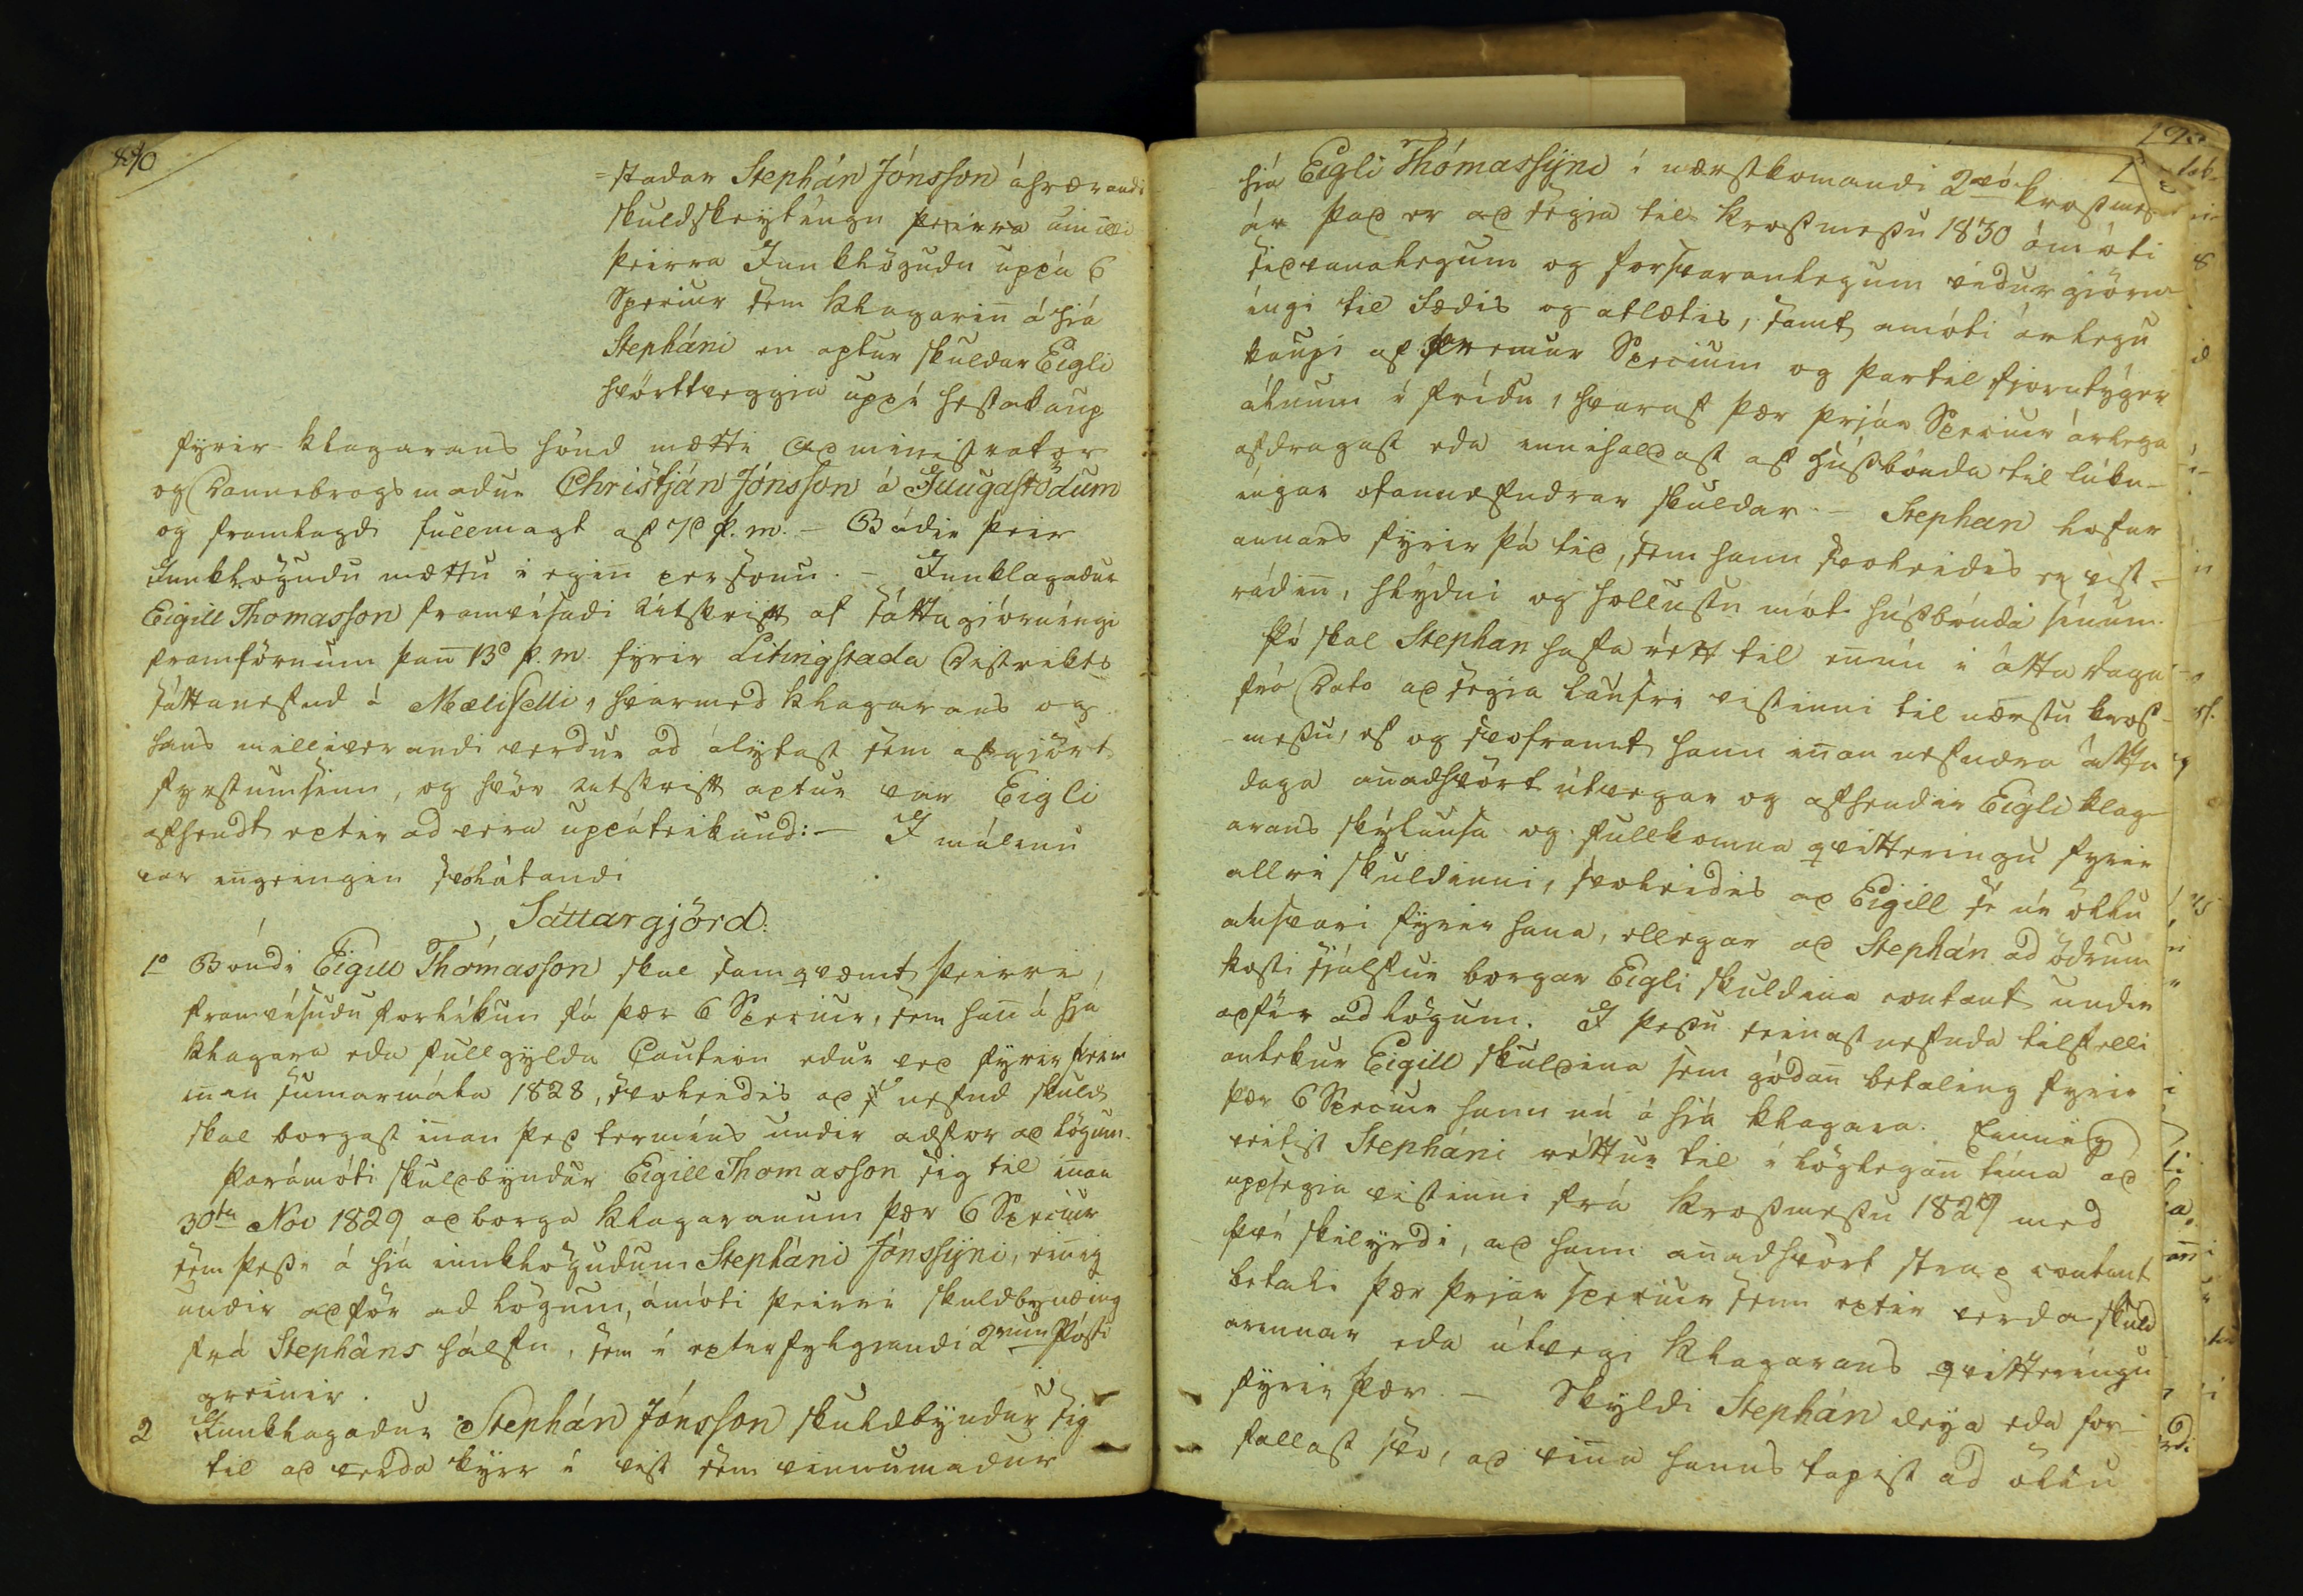 =stadar Stephán Jónsson áhrærandi
skuldskeytíngu þeirra ámilli
þeirra Innklögudu uppá 6
Speciur sem klagarin̄ á hjá
Stepháni en aptur skuldar Eigli
hvörttveggia uppá hestakaup
fyrir klagarans hönd mætti administrator
og Dannebrogsmadur Christján Jónsson á Illugastödum
og framlagdi fullmagt af 7d þ.m. – Bádir þeir
Innklögudu mættu i egin̄ persónu. – Innklagadur
Eigill Thomasson framvísadi Útskrift af sáttagiörníngi
framförnum þan̄ 13d þ.m. fyrir Litingstada Distrikts
sáttanefnd á Mælifelli, hvarmed klagarans og
hans millivera​ndi verdur ad álytast sem afgjört
fyrstumsinn, og hvör útskrift aptur var Eigli
afhendt eptir ad vera uppáteiknud: – I málinu
var in̄geingin svolátandi
Sáttargjörd:
1o Bóndi Eigill Thómasson skal samqvæmt þeirri
framvísudu forlíkun fá þær 6 Speciur, sem han̄ á hjá
klagara eda fullgylda Caution edur ved fyrir þeim
in̄an sumarmála 1828, svoleidis ad nefnd skuld
skal borgast in̄an þess termíns undir adför ad lögum.
Þarámóti skuldbyndur Eigill Thomasson sig til in̄an
30ta Nov 1829 ad borga klagaranum þær 6 Speciur
sem þessi á hjá innklögudum Stepháni Jónssÿni, ein̄ig
undir adför ad lögum, ámóti þeirri skuldbynding
frá Stepháns hálfu, sem í epterfylgiandi 2rum Pósti
greinir.
2 Innklagadur Stephán Jónsson skuldbyndur sig
til ad verda kyrr í vist sem vinnumadur
hjá Eigli Thómassÿni í nærstkomandi 2vö krossmess
ár það er ad segia til krossmessu 1830 ámóti
sidvanalegum og forsvaranlegum vidurgiörn
íngi til fædis og atlætis, samt ámóti árlegu
kaupi af þremur Specium og þartil fjörutýger
álnum í frídu, hvaraf þær þrjár Speciur árlega
afdragast eda innihaldast af húsbónda til lúkn-
íngar ofannefndrar skuldar. – Stephan lofar
annars fyrir þá tid, sem hann svoleidis er vist-
rádin̄, hlýdni og hollustu mót húsbónda sínum.
Þó skal Stephan hafa rétt til en̄nú i átta daga
frá Dato ad segia lausri vistinni til nærstu kross-
messu, ef og svoframt hann in̄an nefndra átta
daga an̄adhvört útvegar og afhendir Eigli klag-
arans skýlausa og fullkomna qvitteringu fyrir
allri skuldinni, svoleidis ad Eigill sé úr öllu
ansvari fyrir hana, ellegar ad Stephán ad ödrum
kosti sjálfur borgar Eigli skuldina contant undir
adför ad lögum. I þessu seinastnefnda tilfelli
antekur Eigill skuldina sem gódan̄ betaling fyrir
þær 6 Speciur hann nú á hjá klagara. Einnig
veitist Stepháni réttur til i löglegan̄ tíma ad
uppsegia vistinni frá krossmessu 1829 med
því skilyrdi, ad hann an̄adhvört strax contant
betali þær þrjár speciur sem eptir verda skuld
arinnar eda útvegi klagarans qvitteríngu
fyrir þær. – Skyldi Stephán deya eda for-
fallast svo, ad vin̄a hanns tapist ad öllu